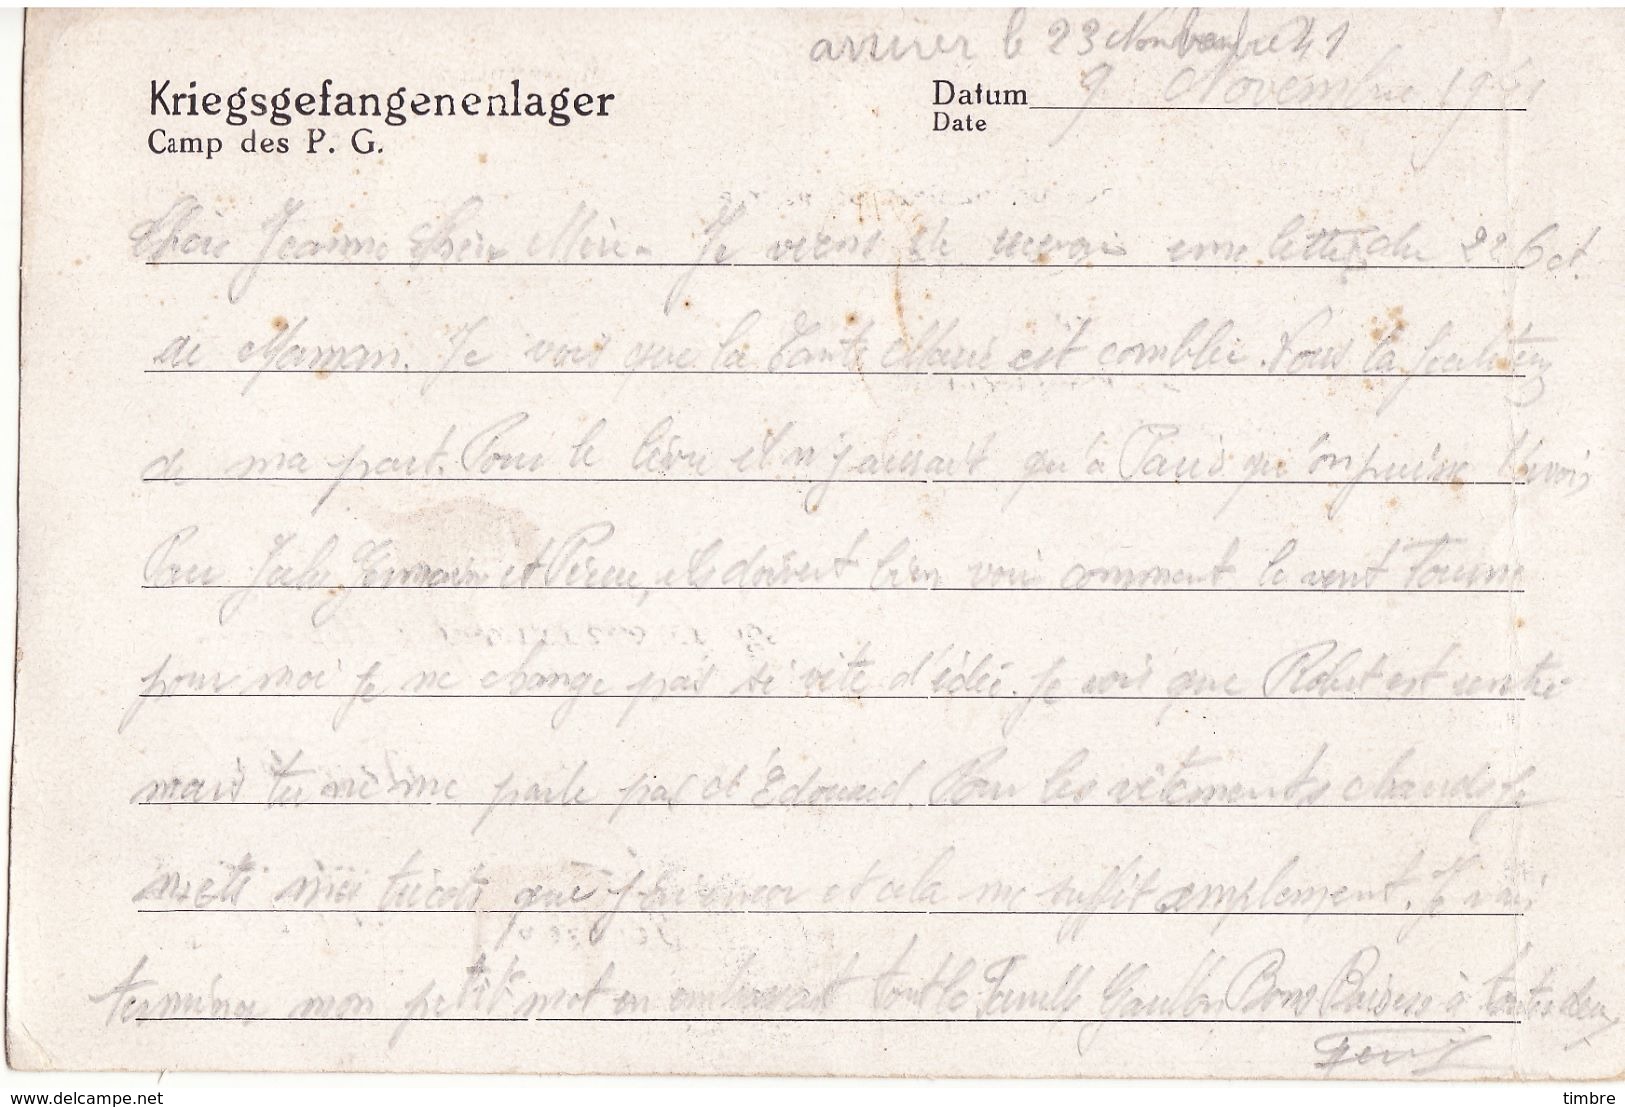 arriver le 23 Novembre 41
Kriegsgefangenenlager
Datum 9 Novembre 1941
Camp des P. G.
Date
Chère Jeanne Chère Mère. Je viens de recevoir une lettre du 22 Oct.
de Maman. Je vois que la Tante Marie est comblée. Vous la
de ma part. Pour le livre il n'y aurait qu'à Paris qu'on puisse l'avoir
Pour et ils doivent bien voir comment le vent tourne
pour moi je ne change pas si vite d'idée. Je vois que Robert est rentré
mais tu ne me parle pas d'Edouard. Pour les vêtements chauds je
mets mes tricots que j'ai et cela me suffit amplement. Je vais
terminer mon petit mot en embrassant toute la Famille Bons Baisers à toutes deux
www.delcampe.net
timbre